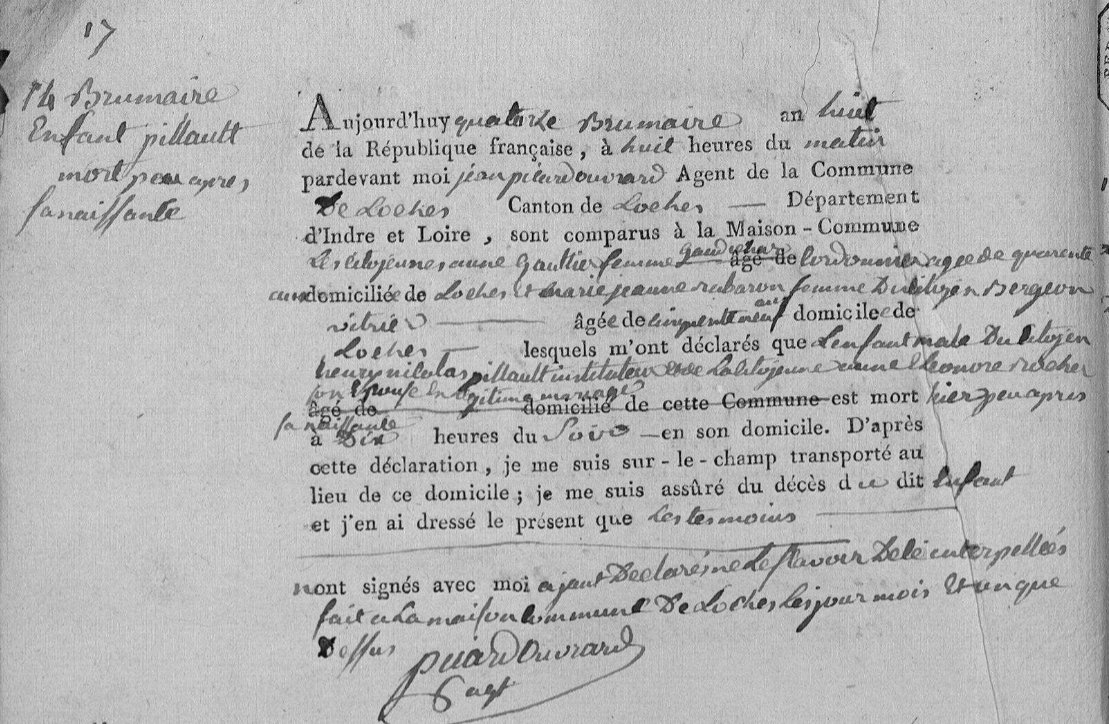 17
14 Brumaire
Enfant pillault
mort peu apres
sa naissante
Aujourd'huy quatorze Brumaire an huit
de la République française, à huit heures du matin
pardevant moi jean picard ouvrard Agent de la Commune
De Loches Canton de Loches — Département
d'Indre et Loire, sont comparus à la Maison-Commune
Les Citojennes anne Gaultier femme gaudichar âgé de Cordonnier agee de quarente
ans domiciliée de Loches Et marie jeanne rabaron femme Du Citojen Bergeon
vitrier — âgée de cinquente neuf ans domiciliée de
Loches — lesquels m'ont déclarés que L'enfant male Du Citojen
henry nicolas pillault instituteur Et de La Citojenne anne Eleonore rocher
son Epouse En legitime mariage
âgé de domicilié de cette Commune est mort hier peu apres
sa naissante
à Dix heures du Soir — en son domicile. D'après
cette déclaration, je me suis sur-le-champ transporté au
lieu de ce domicile; je me suis assûré du décès du dit Enfant
et j'en ai dressé le présent que Les temoins —
nont signés avec moi ajant Declarés ne Le Savoir De ce interpellées
fait a La maison Commune De Loches Les jour mois Et an que
Dessus
picard Ouvrard
agt